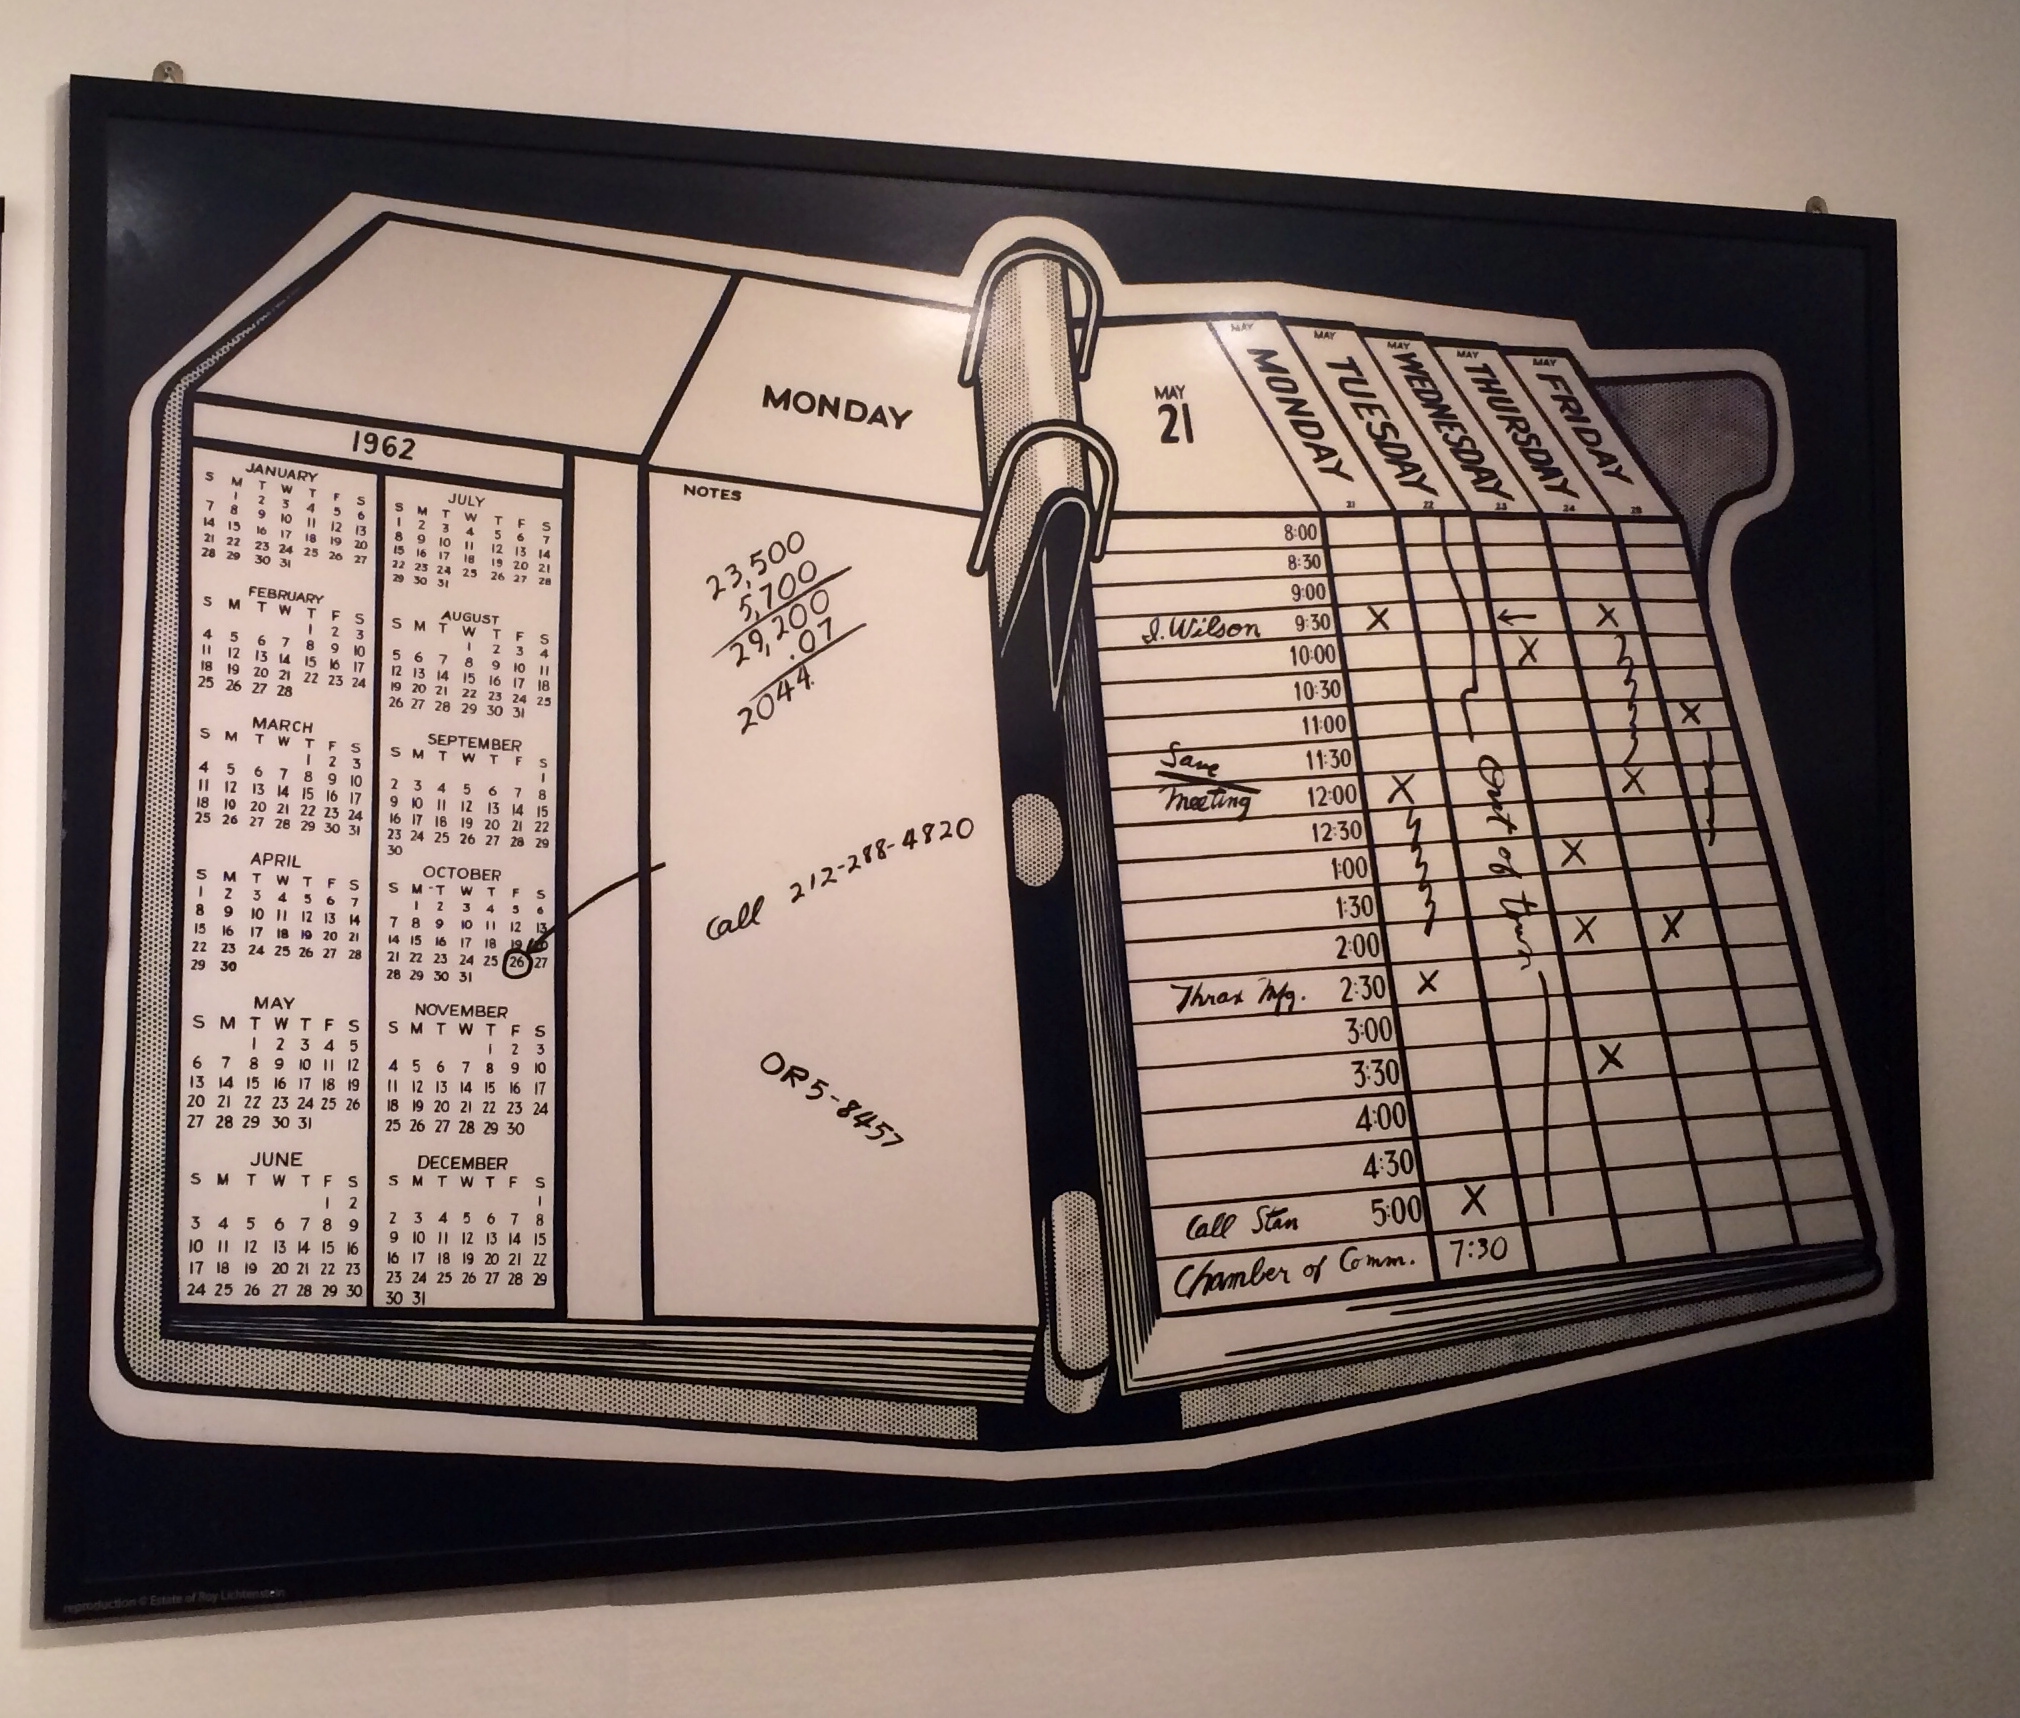 1962
JANUARY
S M T W T F S
1 2 3 4 5 6
7 8 9 10 11 12 13
14 15 16 17 18 19 20
21 22 23 24 25 26 27
28 29 30 31
FEBRUARY
S M T W T F S
1 2 3
4 5 6 7 8 9 10
11 12 13 14 15 16 17
18 19 20 21 22 23 24
25 26 27 28
MARCH
S M T W T F S
1 2 3
4 5 6 7 8 9 10
11 12 13 14 15 16 17
18 19 20 21 22 23 24
25 26 27 28 29 30 31
APRIL
S M T W T F S
1 2 3 4 5 6 7
8 9 10 11 12 13 14
15 16 17 18 19 20 21
22 23 24 25 26 27 28
29 30
MAY
S M T W T F S
1 2 3 4 5
6 7 8 9 10 11 12
13 14 15 16 17 18 19
20 21 22 23 24 25 26
27 28 29 30 31
JUNE
S M T W T F S
1 2
3 4 5 6 7 8 9
10 11 12 13 14 15 16
17 18 19 20 21 22 23
24 25 26 27 28 29 30
JULY
S M T W T F S
1 2 3 4 5 6 7
8 9 10 11 12 13 14
15 16 17 18 19 20 21
22 23 24 25 26 27 28
29 30 31
AUGUST
S M T W T F S
1 2 3 4
5 6 7 8 9 10 11
12 13 14 15 16 17 18
19 20 21 22 23 24 25
26 27 28 29 30 31
SEPTEMBER
S M T W T F S
1
2 3 4 5 6 7 8
9 10 11 12 13 14 15
16 17 18 19 20 21 22
23 24 25 26 27 28 29
30
OCTOBER
S M T W T F S
1 2 3 4 5 6
7 8 9 10 11 12 13
14 15 16 17 18 19 20
21 22 23 24 25 26 27
28 29 30 31
NOVEMBER
S M T W T F S
1 2 3
4 5 6 7 8 9 10
11 12 13 14 15 16 17
18 19 20 21 22 23 24
25 26 27 28 29 30
DECEMBER
S M T W T F S
1
2 3 4 5 6 7 8
9 10 11 12 13 14 15
16 17 18 19 20 21 22
23 24 25 26 27 28 29
30 31
MONDAY
NOTES
23,500
5,700
29,200
.07
2044.
Call 212-288-4820
OR5-8457
MAY
21
MAY MONDAY 21
MAY TUESDAY 22
MAY WEDNESDAY 23
MAY THURSDAY 24
MAY FRIDAY 25
8:00
8:30
9:00
I. Wilson 9:30 X ← X
10:00 X
10:30
11:00 X
11:30
Save
Meeting 12:00 X X
12:30
1:00 X
1:30
2:00 X X
Thrax Mfg. 2:30 X
3:00
3:30 X
4:00
4:30
Call Stan 5:00 X
Chamber of Comm. 7:30
Out of town
reproduction © Estate of Roy Lichtenstein